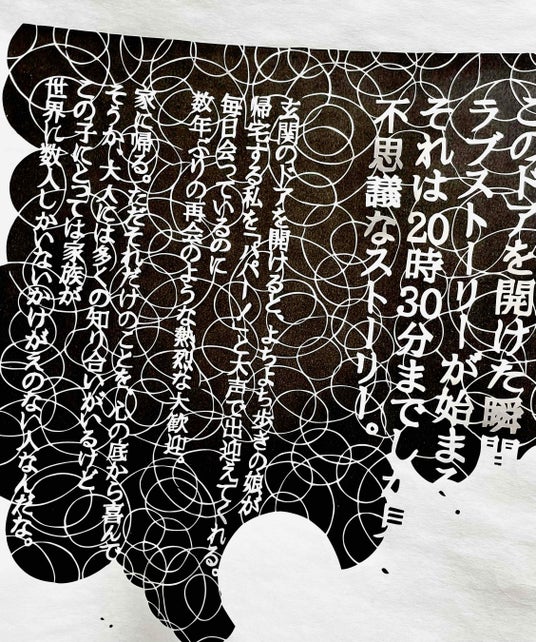 このドアを開けた瞬間
ラブストーリーが始まる
それは20時30分までしか
不思議なストーリー。
玄関のドアを開けると、よちよち歩きの娘が
帰宅する私を「パパーッ」と大声で出迎えてくれる。
毎日会っているのに
数年ぶりの再会のような熱烈な大歓迎。
家に帰る。ただそれだけのことを、心の底から喜んで
そうか、大人には多くの知り合いがいるけど
この子にとっては家族が
世界に数人しかいないかけがえのない人なんだな。